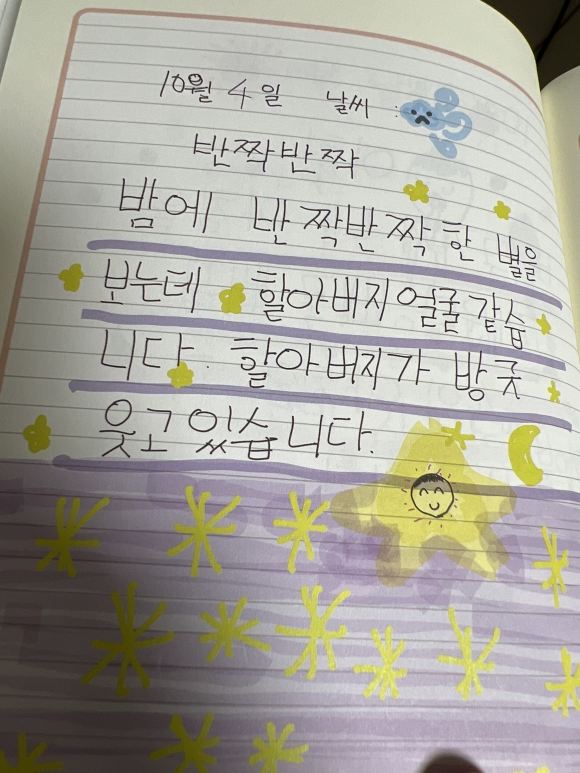 10월 4일 날씨 :
반짝반짝
밤에 반짝반짝 한 별을
보는테 할아버지 얼굴 같습
니다. 할아버지가 방긋
웃고 있습니다.